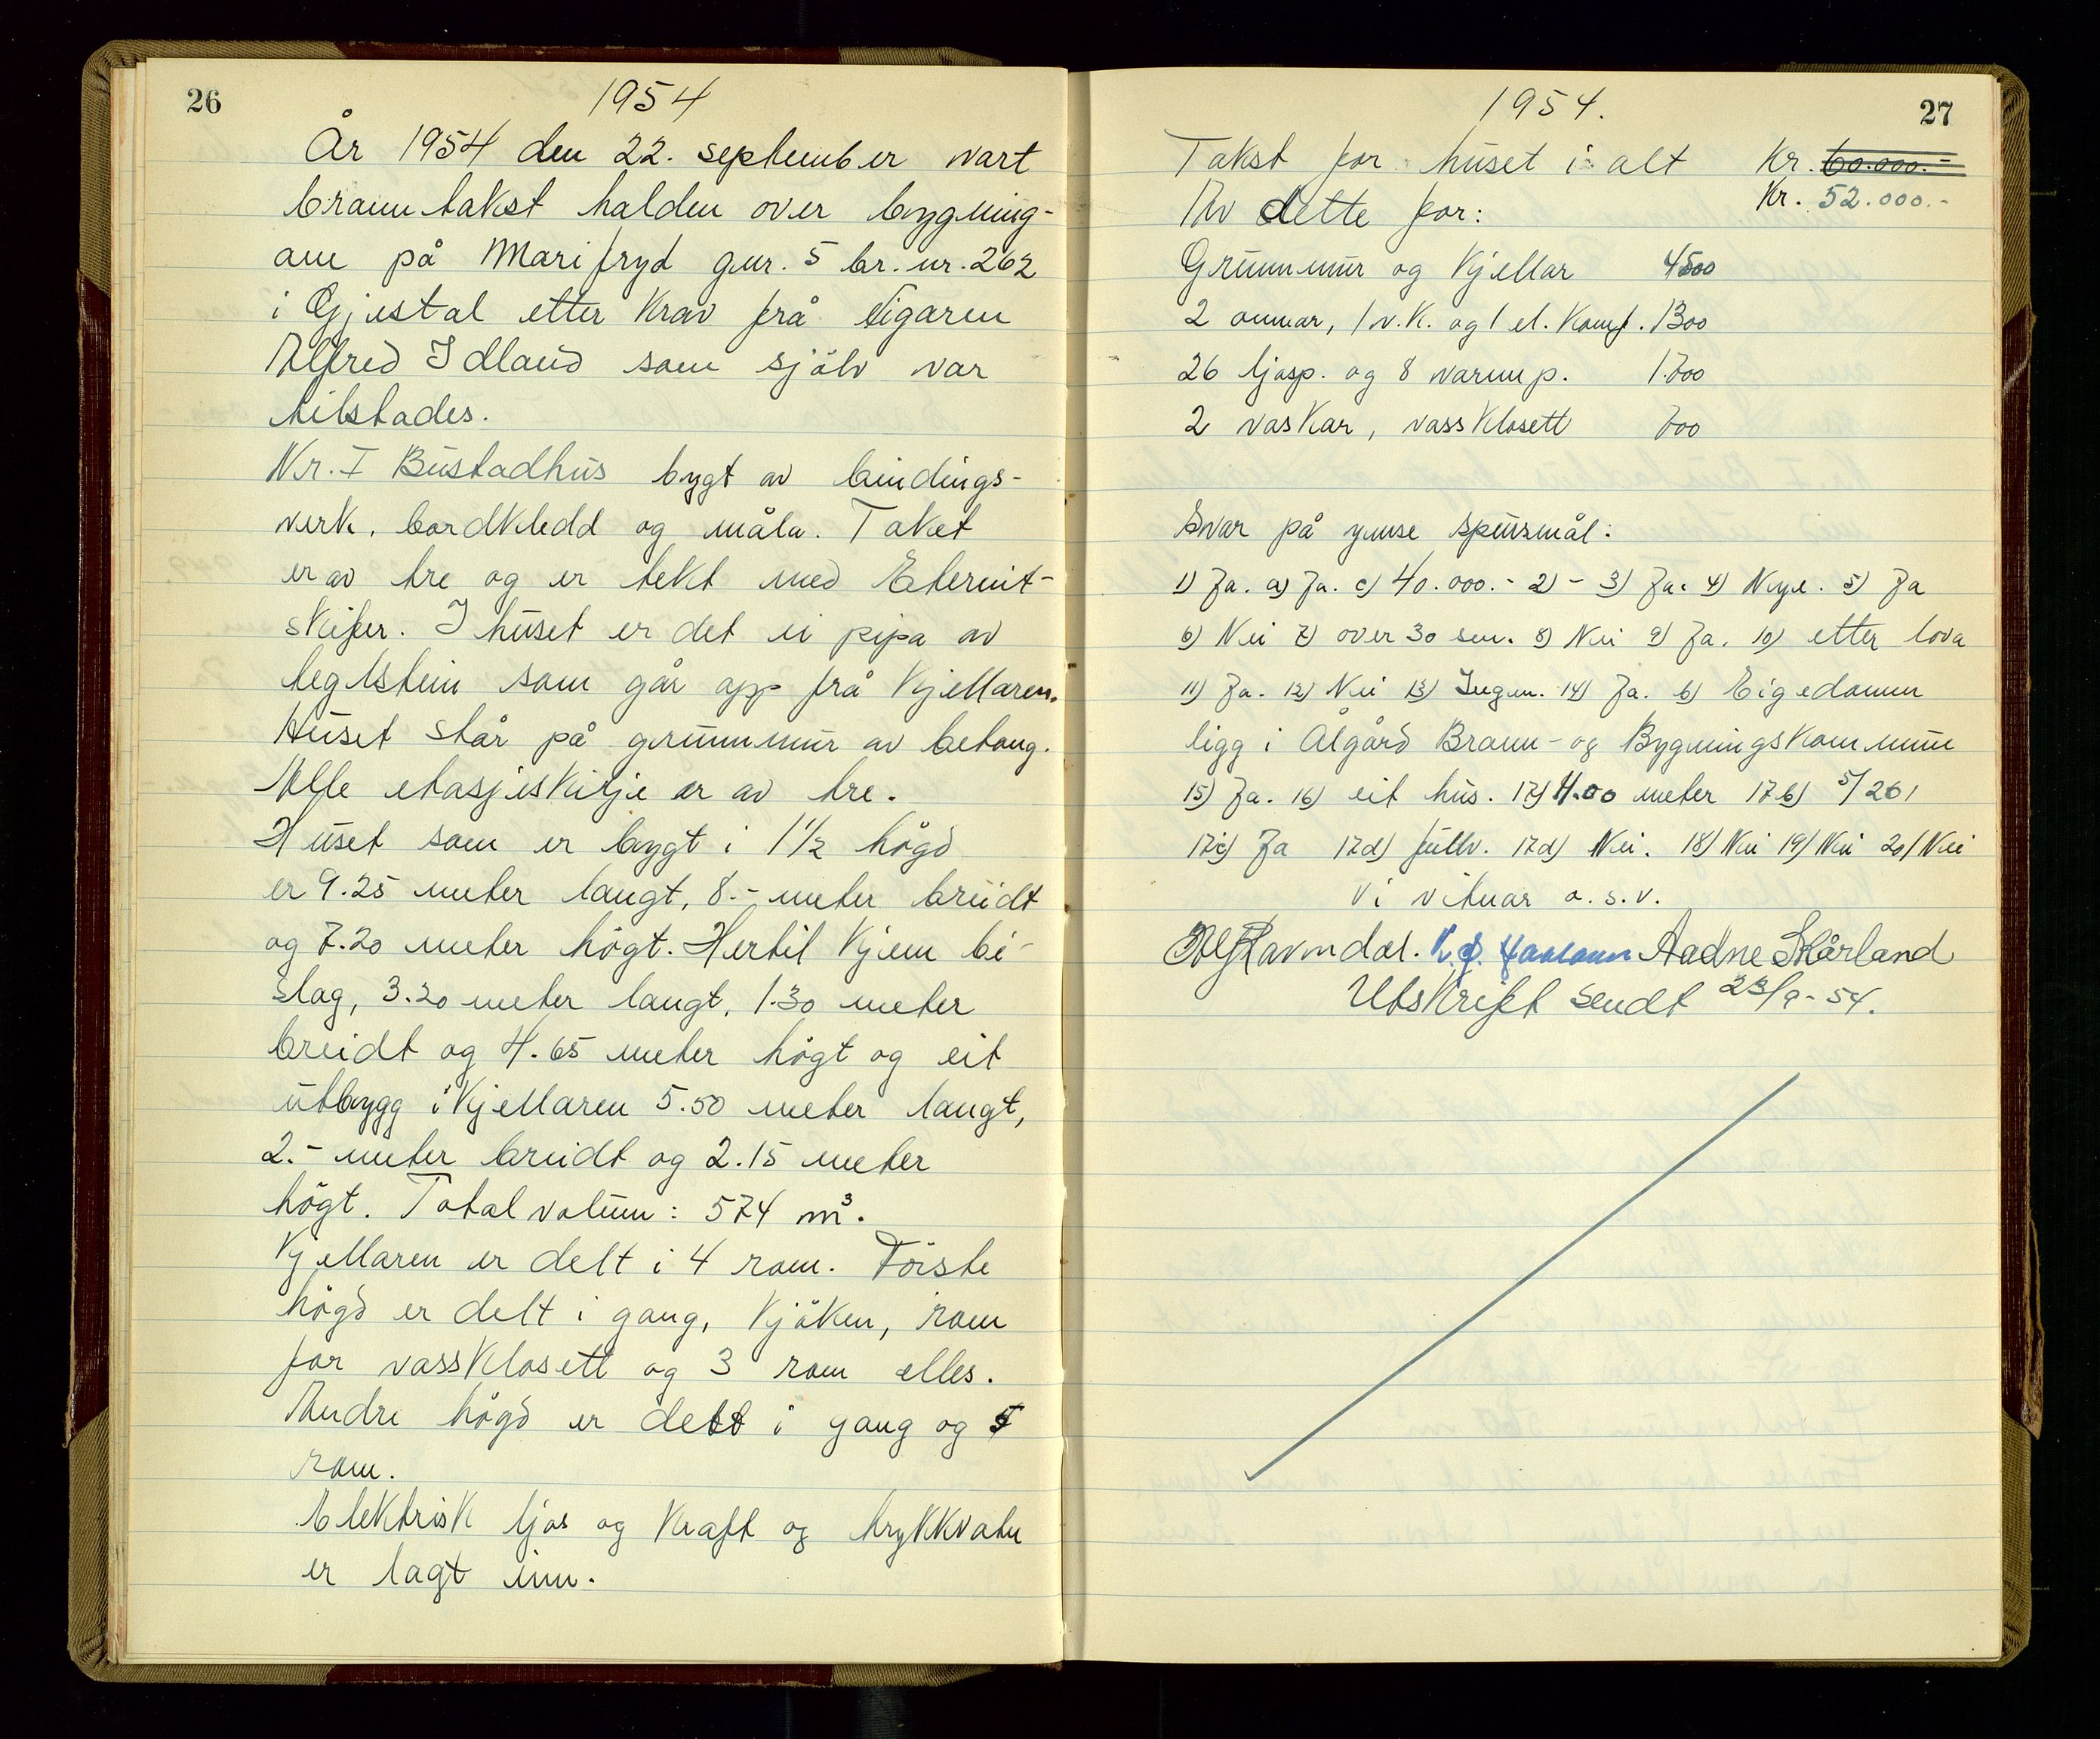 26
1954
År 1954 den 22. september vart
branntakst halden over bygning-
ane på Marifryd gnr. 5 br.nr. 262
i Gjestal etter krav frå Eigaren
Alfred Idland som sjölv var
tilstades.
Nr. I Bustadhus bygt av bindings-
verk, bordkledd og måla. Taket
er av tre og er tekt med Eternit-
skifer. I huset er det ei pipa av
teglstein som går opp frå kjellaren.
Huset står på grunnmur av betong.
Alle etasjeskilje er av tre.
Huset som er bygt i 1 1/2 högd
er 9.25 meter langt, 8.- meter breidt
og 7.20 meter högt. Hertil kjem bi-
slag, 3.20 meter langt, 1.30 meter
breidt og 4.65 meter högt og eit
utbygg i kjellaren 5.50 meter langt,
2.- meter breidt og 2.15 meter
högt. Totalvolum: 574 m³.
Kjellaren er delt i 4 rom. Förste
högd er delt i gang, kjöken, rom
for vassklosett og 3 rom elles.
Andre högd er delt i gang og 5
rom.
Elektrisk ljos og kraft og trykkvatn
er lagt inn.
27
1954.
Takst for huset i alt Kr. 60.000.-
Av dette for: Kr. 52.000.-
Grunnmur og kjellar 4500
2 omnar, 1 v.k. og 1 el. komf. 1300
26 ljosp. og 8 varmep. 1.700
2 vaskar, vassklosett 700
Svar på ymse spursmål:
1) Ja. a) Ja. c) 40.000.- 2) - 3) Ja. 4) Nye. 5) Ja
6) Nei 7) over 30 sm. 8) Nei 9) Ja. 10) etter lova
11) Ja. 12) Nei 13) Ingen. 14) Ja. b) Eigedomen
ligg i Ålgård Brann- og Bygningskommune
15) Ja. 16) eit hus. 17) 4.00 meter 17b) 5/261
17c) Ja 17d) fullv. 17d) Nei. 18) Nei 19) Nei 20) Nei
Vi vitnar o.s.v.
Ravndal. Aadne Skårland
Utskrift sendt 23/9-54.